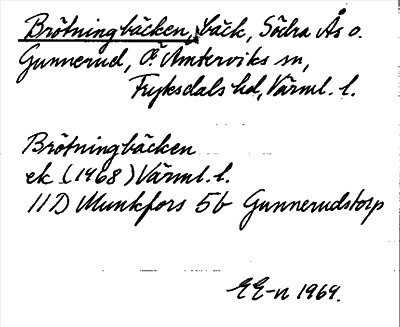 Brötningbäcken, bäck, Södra Ås o.
Gunnerud, Ö. Ämterviks sn,
Fryksdals hd, Värml. l.
Brötningbäcken
ek (1968) Värml. l.
11D Munkfors 5b Gunnerudstorp
EE-n 1969.